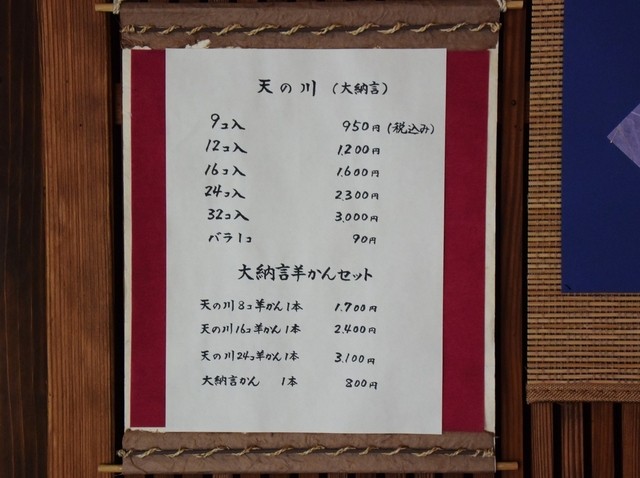 天の川 (大納言)
9コ入 950円 (税込み)
12コ入 1,200円
16コ入 1,600円
24コ入 2,300円
32コ入 3,000円
バラ1コ 90円
大納言羊かんセット
天の川8コ羊かん1本 1,700円
天の川16コ羊かん1本 2,400円
天の川24コ羊かん1本 3,100円
大納言かん 1本 800円